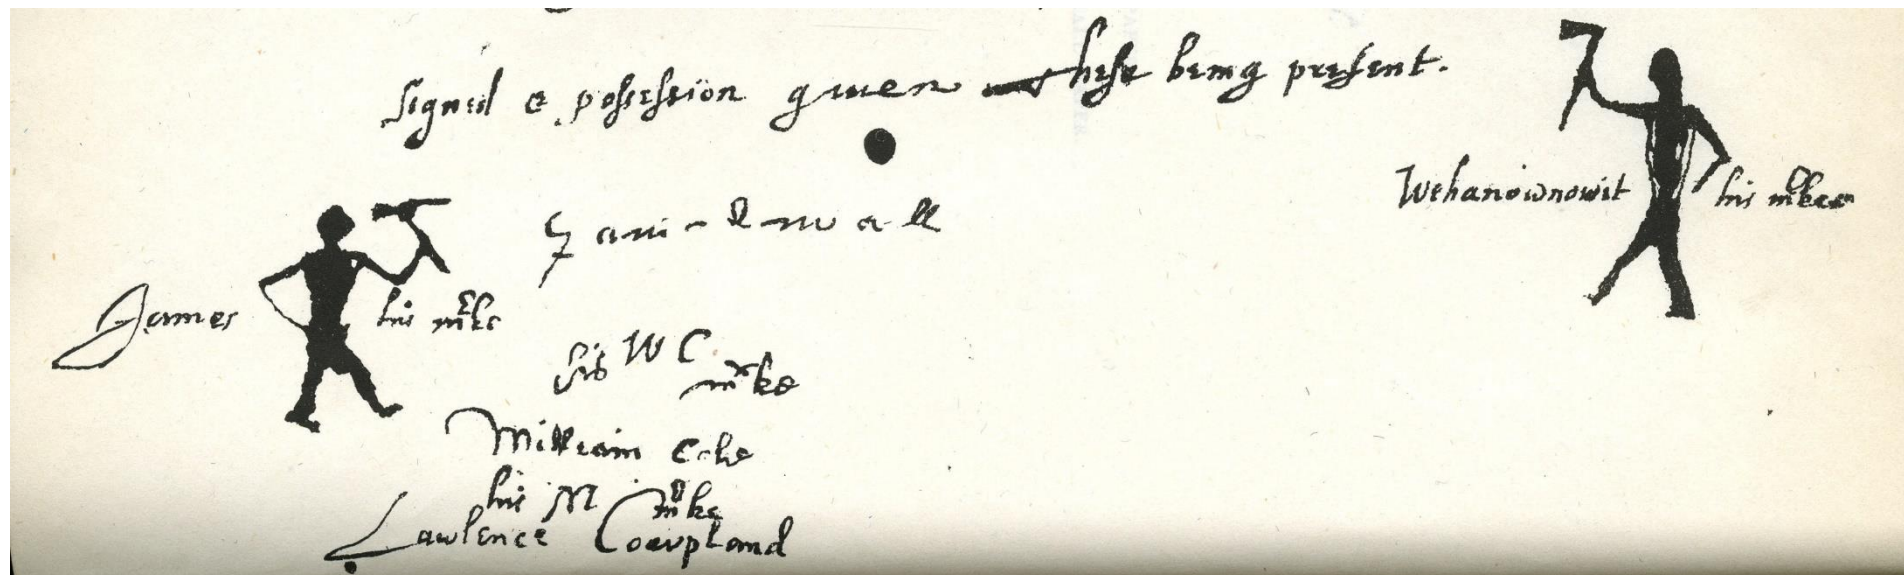 Signed & possession giuen these being present.
Wehanownowit his mke
James his mke
his W C mke
William Cole
his M mke
Lawrence Coupland